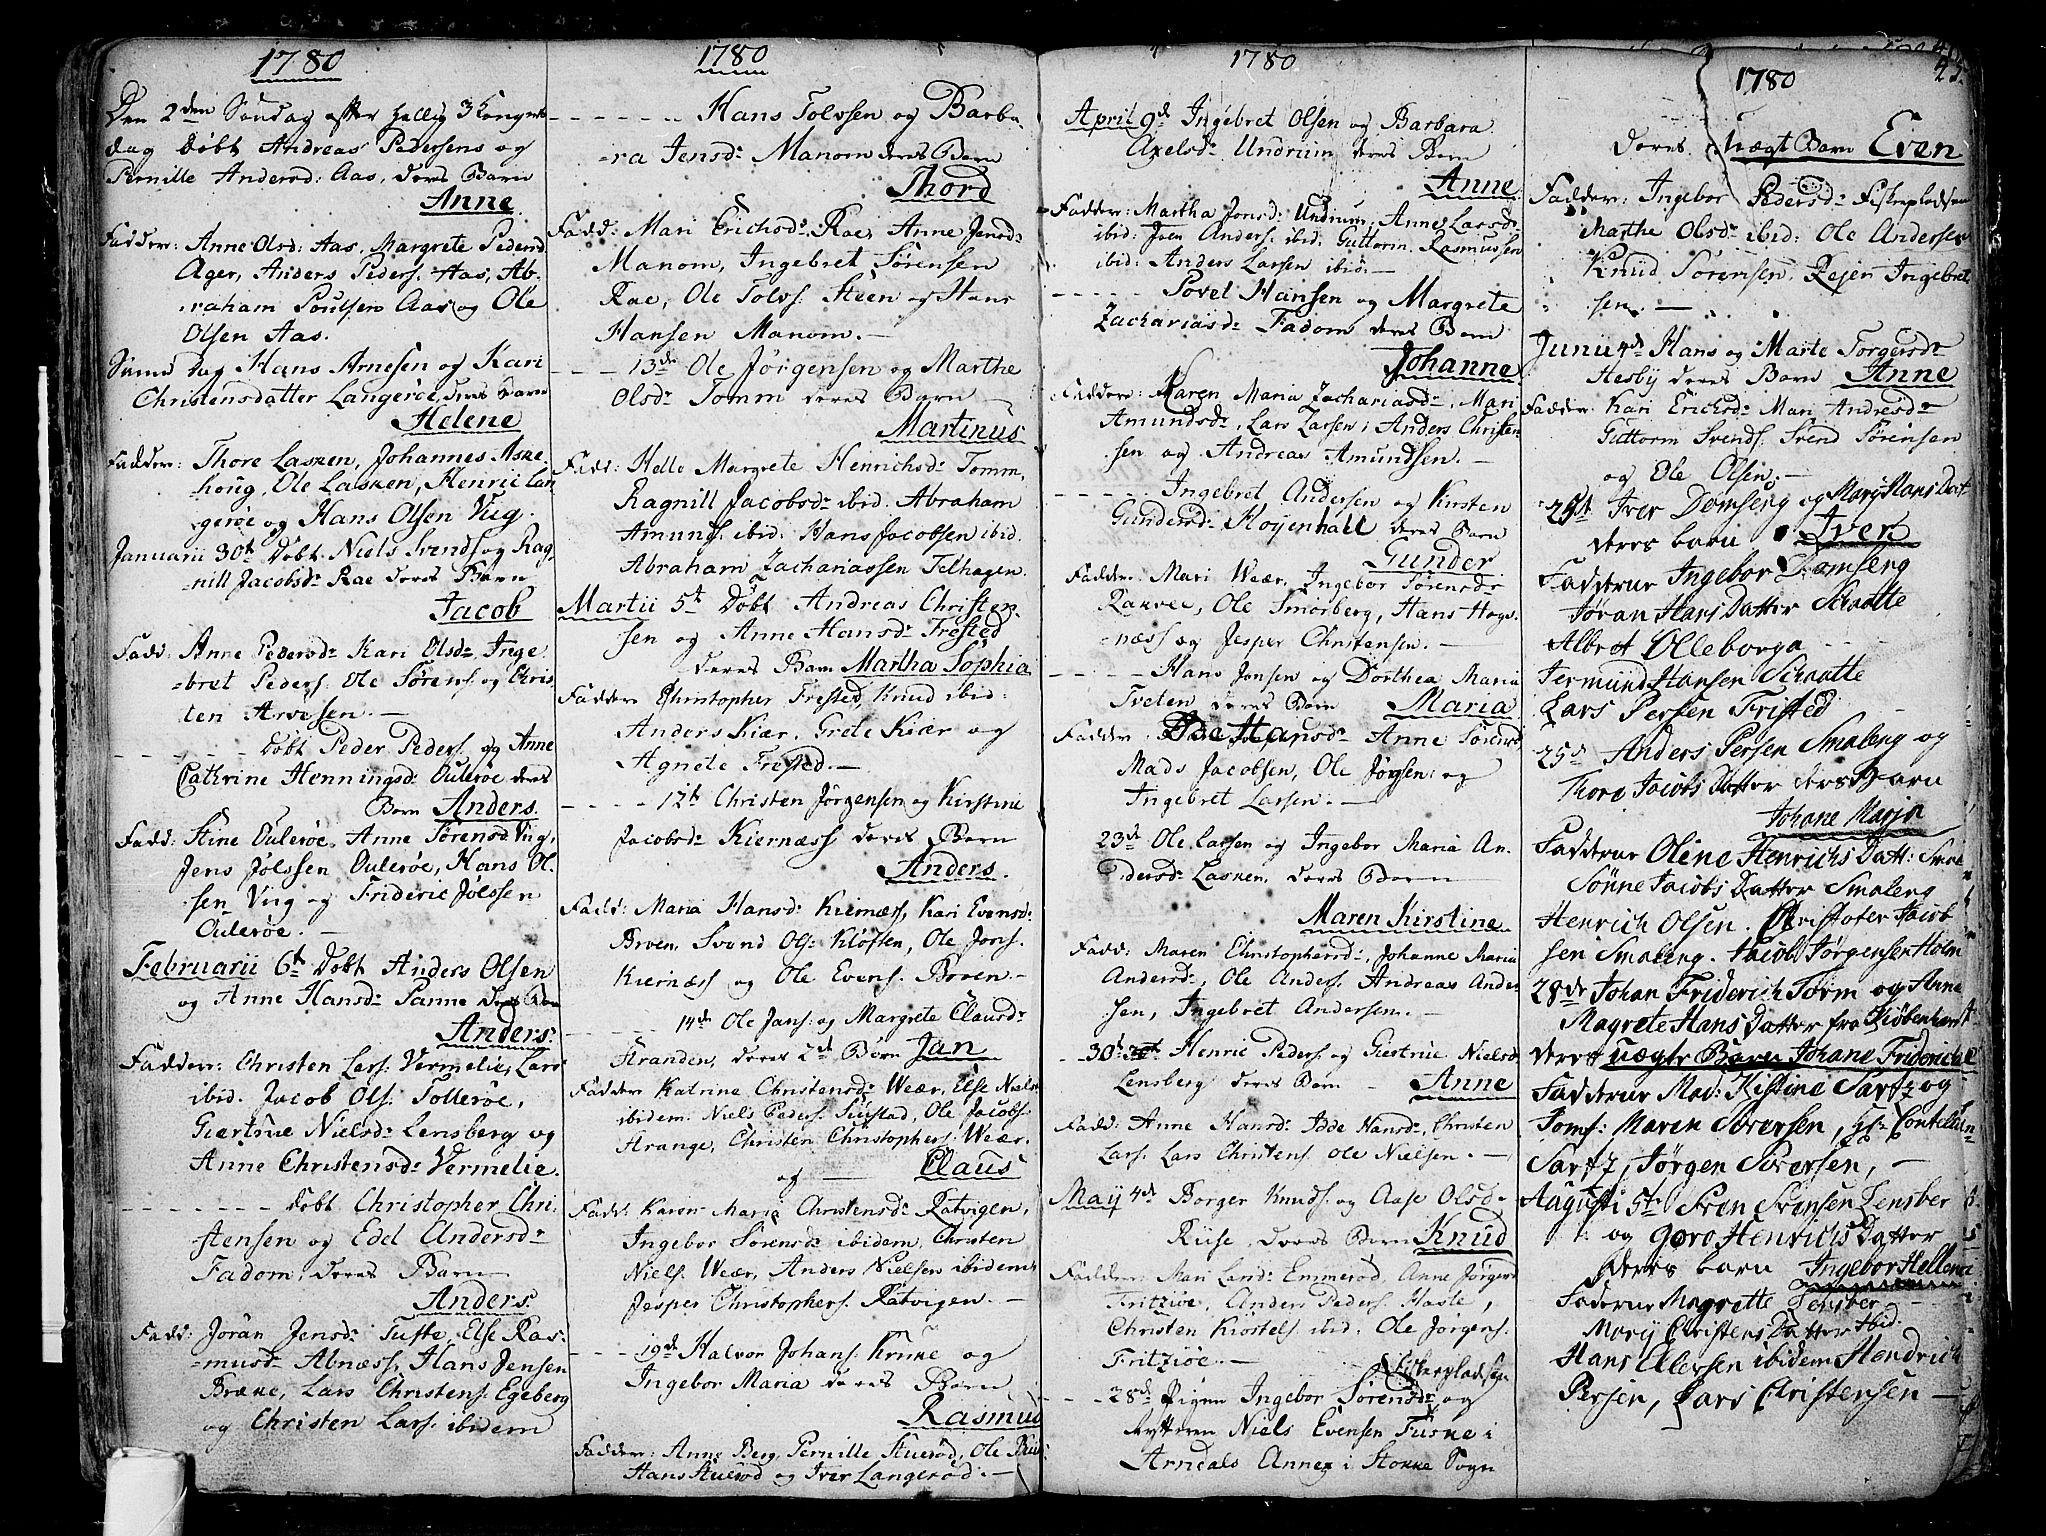 1780
Den 2den Søndag efter hellig 3 Konger
dag Døbt Andreas Pedersens og
Pernille Andersd: Aas, deres Barn
Anne
Fadder: Anne Olsd: Aas, Margrete Pedersd
Ager, Anders Peders: Aas, Ab-
raham Poulsen Aas og Ole
Olsen Aas.
Samme Dag Hans Arnesen og Kari
Christensdatter Langeröe, deres Barn
Helene
Fadder: Thore Lasken, Johannes Aske
houg, Ole Lasken, Henric Lan
geröe og Hans Olsen Viig.
Januarii 30t Døbt Niels Svends og Rag-
nill Jacobsd: Rae deres Barn
Jacob
Fadd: Anne Pedersd: Kari Olsd: Inge
bret Peders: Ole Sörens: og Chris
ten Arvesen.
- - - - Døbt Peder Peders: og Anne
Cathrine Henningsd: Oulerøe deres
Barn Anders.
Fadd: Stine Oulerøe, Anne Sörensd Viig,
Jens Jølssen Oulerøe, Hans Ol-
sen Viig og Frideric Jølssen
Oulerøe.
Februarii 6t Døbt Anders Olsen
og Anne Hansd: Sanne deres Barn
Anders:
Fadder: Christen Lars: Vermelie, Lars
ibid. Jacob Ols: Tollerøe,
Giertrue Nielsd: Lensberg og
Anne Christensd: Vermelie.
- - - - Døbt Christopher Chri-
stensen og Edel Andersd:
Fadom, deres Barn
Anders.
Fadd: Joran Jensd: Tufte, Else Ras-
musd: Abnæss, Hans Jensen
Bræke, Lars Christens: Egeberg
og Christen Lars: ibidem
1780
- - - - Hans Tolvsen og Barba-
ra Jensd: Manom deres Barn
Thord
Fadd: Mari Erichsd: Rae, Anne Jensd:
Manom, Ingebret Sørensen
Rae, Ole Tolvs: Steen og Hans
Hansen Manom.
- - - 13de Ole Jørgensen og Marthe
Olsd: Tomm deres Barn
Martinus
Fadd: Helle Margrete Henrichsd: Tomm,
Ragnill Jacobsd: ibid. Abraham
Amunds: ibid. Hans Jacobsen ibid.
Abraham Zachariassen Felhagen.
Martii 5t Døbt Andreas Christen-
sen og Anne Hansd: Frested
deres Barn Martha Sophia
Fadder Christopher Frested, Knud ibid:
Anders Kiær, Grete Kiær og
Agnete Frested.
- - - 12t Christen Jørgensen og Kirstine
Jacobsd: Kiernæss deres Barn
Anders.
Fadd: Maria Hansd: Kiernæss, Kari Evensd:
Broen, Svend Ols: Kløften, Ole Jons:
Kiernæss og Ole Evens: Broen
- - - 14de Ole Jans: og Margrete Clausd:
Stranden, deres 2de Børn Jan
Fadder Katrine Christensd: Weær, Else Niels:
ibidem: Niels Peders: Suustad, Ole Jacobs:
Strange, Christen Christophers: Weær.
og Claus
Fadd: Karen Maria Christensd: Ratvigen,
Ingebor Sörensd: ibidem, Christen
Niels: Weær, Anders Nielsen ibidem
Jesper Christophers: Ratvigen.
- - - 19de Halvor Johans: Kruke og
Ingebor Maria deres Barn
Rasmus
Fadder: Anne Berg, Pernille Stuerød, Ole
Hans Stuerød og Iver Langerød.
1780
April 9d Ingebret Olsen og Barbara
Axelsd: Undrum deres Barn
Anne
Fadder: Martha Jonsd: Undrum, Anne Larsd:
ibid: Joen Anders: ibid: Guttorm Rasmussen
ibid: Anders Larsen ibid.
- - - - Povel Hansen og Margrete
Zachariasd: Fadom deres Barn
Johanne
Fadder: Karen Maria Zachariasd:, Mari
Amundsd:, Lars Larsen, Anders Christen-
sen og Andreas Amundsen.
- - - - Ingebret Andersen og Kirsten
Gundersd: Høyenhall deres Barn
Gunder
Fadder: Mari Weær, Ingebor Sørensd:
Rakvee, Ole Smørberg, Hans Hogs-
næss og Jesper Christensen.
- - - Hans Jansen og Dorthea Maria
Tveten deres Barn Maria
Fadder: Ide Hansd: Anne Sørensd
Mads Jacobsen, Ole Jørgsen: og
Ingebret Larsen.
23de Ole Larsen og Ingebor Maria An-
dersd: Lasken, deres Barn
Maren Kirstine
Fadd: Maren Christophersd:, Johanne Maria
Andersd:, Ole Anders: Andreas Ander
sen, Ingebret Andersen.
30d Henric Peders: og Giertrue Nielsd:
Lensberg deres Barn - Anne
Fadd: Anne Hansd: Idde Hansd:, Christen
Lars: Lars Christens: Ole Nielsen.
May 4d Borger Knuds: og Aase Olsd:
Riise, deres Barn Knud
Fadder: Mari Land: Emmerød, Anne Jørgensd
Fritzöe Anders Peders: Hasle,
Christen Kiostels: ibid. Ole Jorgens:
Fritzöe. -
Fiskerpladsen
28de Pigen Ingebor Sörensd: og
Rytteren Niels Evensen Fuske i
Arndals Annex i Stokke Sogn
45.
1780
Deres Uægt Barn Even
Fadder: Ingebor Pedersd: Fiskepladsen
Marthe Olsd: ibid: Ole Andersen
Knud Sørensen, Rejer Ingebret
sen. -
Junii 4d Hans og Marte Torgersd:
Hesby deres Barn Anne
Fadder: Kari Erichsd: Mari Andersd:
Guttorm Svends: Svend Sörensen
og Ole Olsen. -
25t Iver Domberg og Mary Hans Dat
deres barn Iver
Faddrur Ingebor Domberg
Jøran Hans Datter Schaatte
Albret Olleborga
Jermund Hansen Schaatte
Lars Persen Fristed
25d Anders Persen Smaleng og
Thore Jacobs Datter deres Barn
Johane Maria
Faddrur Oline Henrichs Datt: Smal
Sönne Jacobs Datter Smaleng
Henrich Olsen. Christofer Jacob
sen Smaleng. Jacob Jørgensen Holm
28de Johan Friderich Torm og Anne
Magrete Hans Datter fra Kiøbenhavn
deres uægte Barn Johane Friderich
Faddrur Mad: Kistine Sartz og
Jomf: Maren Sørensen, Hr: Contelleun
Sartz, Jørgen Sørensen, -
Augusti 5te Sven Svensen Lensber
og Goro Henrichs Datter
deres barn Ingebor Hellena
Faderur Magrette Lensber
Mary Christens Datter Ibid.
Hans Olersen ibidem Hendrich
Persen, Lars Christensen -